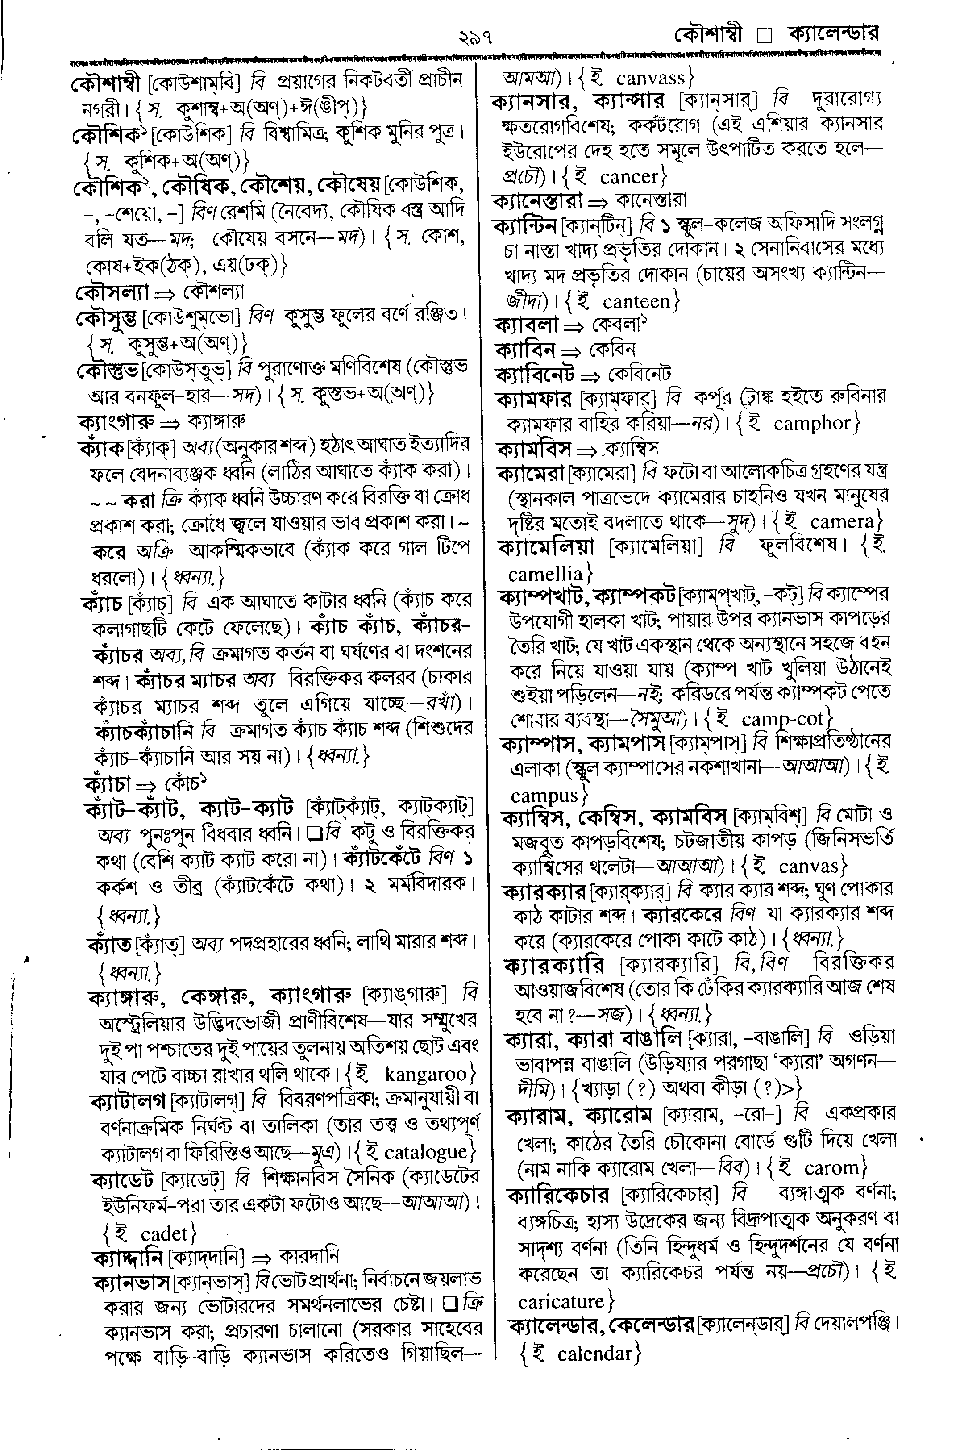 ২৯৭
কৌশাম্বী □ ক্যালেন্ডার
কৌশাম্বী [কোউশাম্‌বি] বি প্রয়াগের নিকটবর্তী প্রাচীন
নগরী। {স. কুশাম্ব+অ(অণ্)+ঈ(ঙীপ্)}
কৌশিক১ [কোউশিক] বি বিশ্বামিত্র; কুশিক মুনির পুত্র।
{স. কুশিক+অ(অণ্)}
কৌশিক২, কৌষিক, কৌশেয়, কৌষেয় [কোউশিক,
–, –শেয়ো, –] বিণ রেশমি (নৈবেদ্য, কৌষিক বস্ত্র আদি
বলি যত—মদ; কৌষেয় বসনে—মদ)। {স. কোশ,
কোষ+ইক(ঠক্), এয়(ঢক্)}
কৌসল্যা ⇒ কৌশল্যা
কৌসুম্ভ [কোউশুম্‌ভো] বিণ কুসুম্ভ ফুলের বর্ণে রঞ্জিত।
{স. কুসুম্ভ+অ(অণ্)}
কৌস্তুভ [কোউস্‌তুভ্] বি পুরাণোক্ত মণিবিশেষ (কৌস্তুভ
আর বনফুল-হার—সদ)। {স. কুস্তুভ+অ(অণ্)}
ক্যাংগারু ⇒ ক্যাঙ্গারু
ক্যাঁক [ক্যাঁক্] অব্য (অনুকার শব্দ) হঠাৎ আঘাত ইত্যাদির
ফলে বেদনাব্যঞ্জক ধ্বনি (লাঠির আঘাতে ক্যাঁক করা)।
~ ~ করা ক্রি ক্যাঁক ধ্বনি উচ্চারণ করে বিরক্তি বা ক্রোধ
প্রকাশ করা; ক্রোধে জ্বলে যাওয়ার ভাব প্রকাশ করা। ~
করে অক্রি আকস্মিকভাবে (ক্যাঁক করে গাল টিপে
ধরলো)। {ধ্বন্যা.}
ক্যাঁচ [ক্যাঁচ্] বি এক আঘাতে কাটার ধ্বনি (ক্যাঁচ করে
কলাগাছটি কেটে ফেলেছে)। ক্যাঁচ ক্যাঁচ, ক্যাঁচর-
ক্যাঁচর অব্য, বি ক্রমাগত কর্তন বা ঘর্ষণের বা দংশনের
শব্দ। ক্যাঁচর ম্যাচর অব্য বিরক্তিকর কলরব (চাকার
ক্যাঁচর ম্যাচর শব্দ তুলে এগিয়ে যাচ্ছে—রখাঁ)।
ক্যাঁচক্যাঁচানি বি ক্রমাগত ক্যাঁচ ক্যাঁচ শব্দ (শিশুদের
ক্যাঁচ-ক্যাঁচানি আর সয় না)। {ধ্বন্যা.}
ক্যাঁচা ⇒ কোঁচ১
ক্যাঁট-ক্যাঁট, ক্যাট-ক্যাট [ক্যাঁট্‌ক্যাঁট্, ক্যাট্‌ক্যাট্]
অব্য পুনঃপুন বিধবার ধ্বনি। □বি কটু ও বিরক্তিকর
কথা (বেশি ক্যাট ক্যাট করো না)। ক্যাঁটকেঁটে বিণ ১
কর্কশ ও তীব্র (ক্যাঁটকেঁটে কথা)। ২ মর্মবিদারক।
{ধ্বন্যা.}
ক্যাঁত [ক্যাঁত্] অব্য পদপ্রহারের ধ্বনি; লাথি মারার শব্দ।
{ধ্বন্যা.}
ক্যাঙ্গারু, কেঙ্গারু, ক্যাংগারু [ক্যাঙ্‌গারু] বি
অস্ট্রেলিয়ার উদ্ভিদভোজী প্রাণীবিশেষ—যার সম্মুখের
দুই পা পশ্চাতের দুই পায়ের তুলনায় অতিশয় ছোট এবং
যার পেটে বাচ্চা রাখার থলি থাকে। {ই kangaroo}
ক্যাটালগ [ক্যাটালগ্] বি বিবরণপত্রিকা; ক্রমানুযায়ী বা
বর্ণনাক্রমিক নির্ঘণ্ট বা তালিকা (তার তত্ত্ব ও তথ্যপূর্ণ
ক্যাটালগ বা ফিরিস্তিও আছে—মুএ)। {ই catalogue}
ক্যাডেট [ক্যাডেট্] বি শিক্ষানবিস সৈনিক (ক্যাডেটের
ইউনিফর্ম-পরা তার একটা ফটোও আছে—আআআ)।
{ই cadet}
ক্যাদ্দানি [ক্যাদ্‌দানি] ⇒ কারদানি
ক্যানভাস [ক্যান্‌ভাস্] বি ভোট প্রার্থনা; নির্বাচনে জয়লাভ
করার জন্য ভোটারদের সমর্থনলাভের চেষ্টা। □ক্রি
ক্যানভাস করা; প্রচারণা চালানো (সরকার সাহেবের
পক্ষে বাড়ি-বাড়ি ক্যানভাস করিতেও গিয়াছিল—
আমআ)। {ই canvass}
ক্যানসার, ক্যান্সার [ক্যান্‌সার্] বি দুরারোগ্য
ক্ষতরোগবিশেষ; কর্কটরোগ (এই এশিয়ার ক্যানসার
ইউরোপের দেহ হতে সমূলে উৎপাটিত করতে হলে—
প্রচৌ)। {ই cancer}
ক্যানেস্তারা ⇒ কানেস্তারা
ক্যান্টিন [ক্যান্‌টিন্] বি ১ স্কুল-কলেজ অফিসাদি সংলগ্ন
চা নাস্তা খাদ্য প্রভৃতির দোকান। ২ সেনানিবাসের মধ্যে
খাদ্য মদ প্রভৃতির দোকান (চায়ের অসংখ্য ক্যান্টিন—
জীদা)। {ই canteen}
ক্যাবলা ⇒ কেবলা১
ক্যাবিন ⇒ কেবিন
ক্যাবিনেট ⇒ কেবিনেট
ক্যামফার [ক্যাম্‌ফার্] বি কর্পূর (ট্রাঙ্ক হইতে রুবিনার
ক্যামফার বাহির করিয়া—নর)। {ই camphor}
ক্যামবিস ⇒ ক্যাম্বিস
ক্যামেরা [ক্যামেরা] বি ফটো বা আলোকচিত্র গ্রহণের যন্ত্র
(স্থানকাল পাত্রভেদে ক্যামেরার চাহনিও যখন মানুষের
দৃষ্টির মতোই বদলাতে থাকে—সুদ)। {ই camera}
ক্যামেলিয়া [ক্যামেলিয়া] বি ফুলবিশেষ। {ই.
camellia}
ক্যাম্পখাট, ক্যাম্পকট [ক্যাম্‌প্‌খাট্, -কট্] বি ক্যাম্পের
উপযোগী হালকা খাট; পায়ার উপর ক্যানভাস কাপড়ের
তৈরি খাট; যে খাট একস্থান থেকে অন্যস্থানে সহজে বহন
করে নিয়ে যাওয়া যায় (ক্যাম্প খাট খুলিয়া উঠানেই
শুইয়া পড়িলেন—নই; করিডরে পর্যন্ত ক্যাম্পকট পেতে
শোবার ব্যবস্থা—সৈমুআ)। {ই camp-cot}
ক্যাম্পাস, ক্যামপাস [ক্যাম্‌পাস্] বি শিক্ষাপ্রতিষ্ঠানের
এলাকা (স্কুল ক্যাম্পাসের নকশাখানা—আআআ)। {ই.
campus}
ক্যাম্বিস, কেম্বিস, ক্যামবিস [ক্যাম্‌বিশ্] বি মোটা ও
মজবুত কাপড়বিশেষ; চটজাতীয় কাপড় (জিনিসভর্তি
ক্যাম্বিসের থলেটা—আআআ)। {ই canvas}
ক্যারক্যার [ক্যার্‌ক্যার্] বি ক্যার ক্যার শব্দ; ঘুণ পোকার
কাঠ কাটার শব্দ। ক্যারকেরে বিণ যা ক্যারক্যার শব্দ
করে (ক্যারকেরে পোকা কাটে কাঠ)। {ধ্বন্যা.}
ক্যারক্যারি [ক্যারক্যারি] বি, বিণ বিরক্তিকর
আওয়াজবিশেষ (তোর কি ঢেঁকির ক্যারক্যারি আজ শেষ
হবে না?—সজ)। {ধ্বন্যা.}
ক্যারা, ক্যারা বাঙালি [ক্যারা, -বাঙালি] বি ওড়িয়া
ভাবাপন্ন বাঙালি (উড়িষ্যার পরগাছা ‘ক্যারা’ অগণন—
দীমি)। {খ্যাড়া (?) অথবা কীড়া (?)>}
ক্যারাম, ক্যারোম [ক্যারাম, -রো-] বি একপ্রকার
খেলা; কাঠের তৈরি চৌকোনা বোর্ডে গুটি দিয়ে খেলা
(নাম নাকি ক্যারোম খেলা—বিব)। {ই carom}
ক্যারিকেচার [ক্যারিকেচার্] বি ব্যঙ্গাত্মক বর্ণনা;
ব্যঙ্গচিত্র; হাস্য উদ্রেকের জন্য বিদ্রূপাত্মক অনুকরণ বা
সাদৃশ্য বর্ণনা (তিনি হিন্দুধর্ম ও হিন্দুদর্শনের যে বর্ণনা
করেছেন তা ক্যারিকেচর পর্যন্ত নয়—প্রচৌ)। {ই
caricature}
ক্যালেন্ডার, কেলেন্ডার [ক্যালেন্‌ডার্] বি দেয়ালপঞ্জি।
{ই calendar}